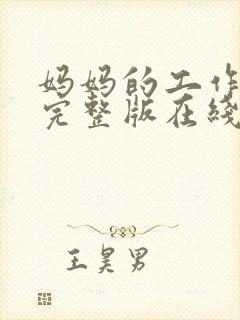 妈妈的工作
完整版在线
王昊男